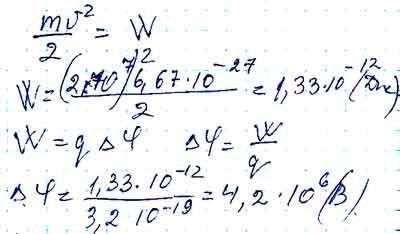 mv²/2 = W
W = (2·10⁷)² 6,67·10⁻²⁷ / 2 = 1,33·10⁻¹² (Дж)
W = q Δφ   Δφ = W/q
Δφ = 1,33·10⁻¹² / 3,2 10⁻¹⁹ = 4,2·10⁶ (В)